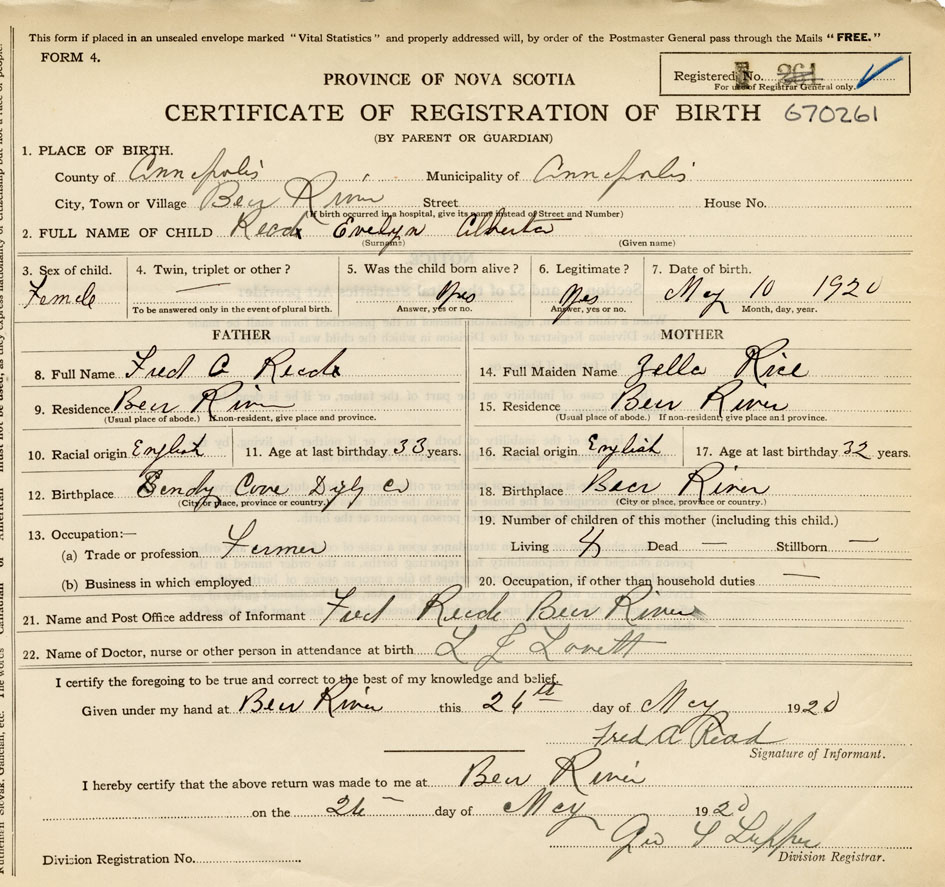 This form if placed in an unsealed envelope marked "Vital Statistics" and properly addressed will, by order of the Postmaster General pass through the Mails "FREE."
FORM 4.
Registered No. 261
For use of Registrar General only.
PROVINCE OF NOVA SCOTIA
CERTIFICATE OF REGISTRATION OF BIRTH 670261
(BY PARENT OR GUARDIAN)
1. PLACE OF BIRTH.
County of Annapolis Municipality of Annapolis
City, Town or Village Bear River Street House No.
(If birth occurred in a hospital, give its name instead of Street and Number)
2. FULL NAME OF CHILD Read Evelyn Alberta
(Surname) (Given name)
3. Sex of child. 4. Twin, triplet or other? 5. Was the child born alive? 6. Legitimate? 7. Date of birth.
Female — Yes Yes May 10 1920
To be answered only in the event of plural birth. Answer, yes or no. Answer, yes or no. Month, day, year.
FATHER
8. Full Name Fred A Read
9. Residence Bear River
(Usual place of abode.) If non-resident, give place and province.
10. Racial origin English 11. Age at last birthday 33 years.
12. Birthplace Sandy Cove Digby Co
(City or place, province or country)
13. Occupation:—
(a) Trade or profession Farmer
(b) Business in which employed
MOTHER
14. Full Maiden Name Zella Rice
15. Residence Bear River
(Usual place of abode.) If non-resident, give place and province.
16. Racial origin English 17. Age at last birthday 32 years.
18. Birthplace Bear River
(City or place, province or country.)
19. Number of children of this mother (including this child.)
Living 4 Dead — Stillborn —
20. Occupation, if other than household duties —
21. Name and Post Office address of Informant Fred Reade Bear River
22. Name of Doctor, nurse or other person in attendance at birth L J Lovett
I certify the foregoing to be true and correct to the best of my knowledge and belief.
Given under my hand at Bear River this 26th day of May 1920
Fred A Read
Signature of Informant.
I hereby certify that the above return was made to me at Bear River
on the 26 day of May 1920
Geo
Division Registrar.
Division Registration No.